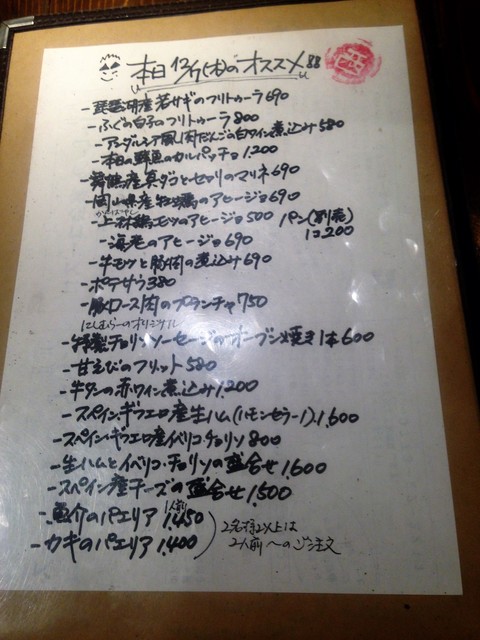 本日13日(木)のオススメ
-琵琶湖産若サギのフリトゥーラ690
-ふぐの白子のフリトゥーラ800
-アンダルシア風肉だんごの白ワイン煮込み580
-本日の鮮魚のカルパッチョ1,200
-舞鶴産真ダコとセロリのマリネ690
-岡山県産牡蠣のアヒージョ690
-上林鶏モツのアヒージョ500 パン(別売)
1コ200
-海老のアヒージョ690
-牛モツと豚肉の煮込み690
-ポテサラ380
-豚ロース肉のプランチャ750
-特製チョリソーセージのオーブン焼き1本600
-甘えびのフリット580
-牛タンの赤ワイン煮込み1,200
-スペイン・ギフエロ産生ハム(ハモンセラーノ)1,600
-スペイン・ギフエロ産イベリコ・チョリソ800
-生ハムとイベリコ・チョリソの盛合せ1,600
-スペイン産チーズの盛合せ1,500
1人前
-魚介のパエリア1,450
-カキのパエリア1,400
2名様以上は
2人前〜のご注文